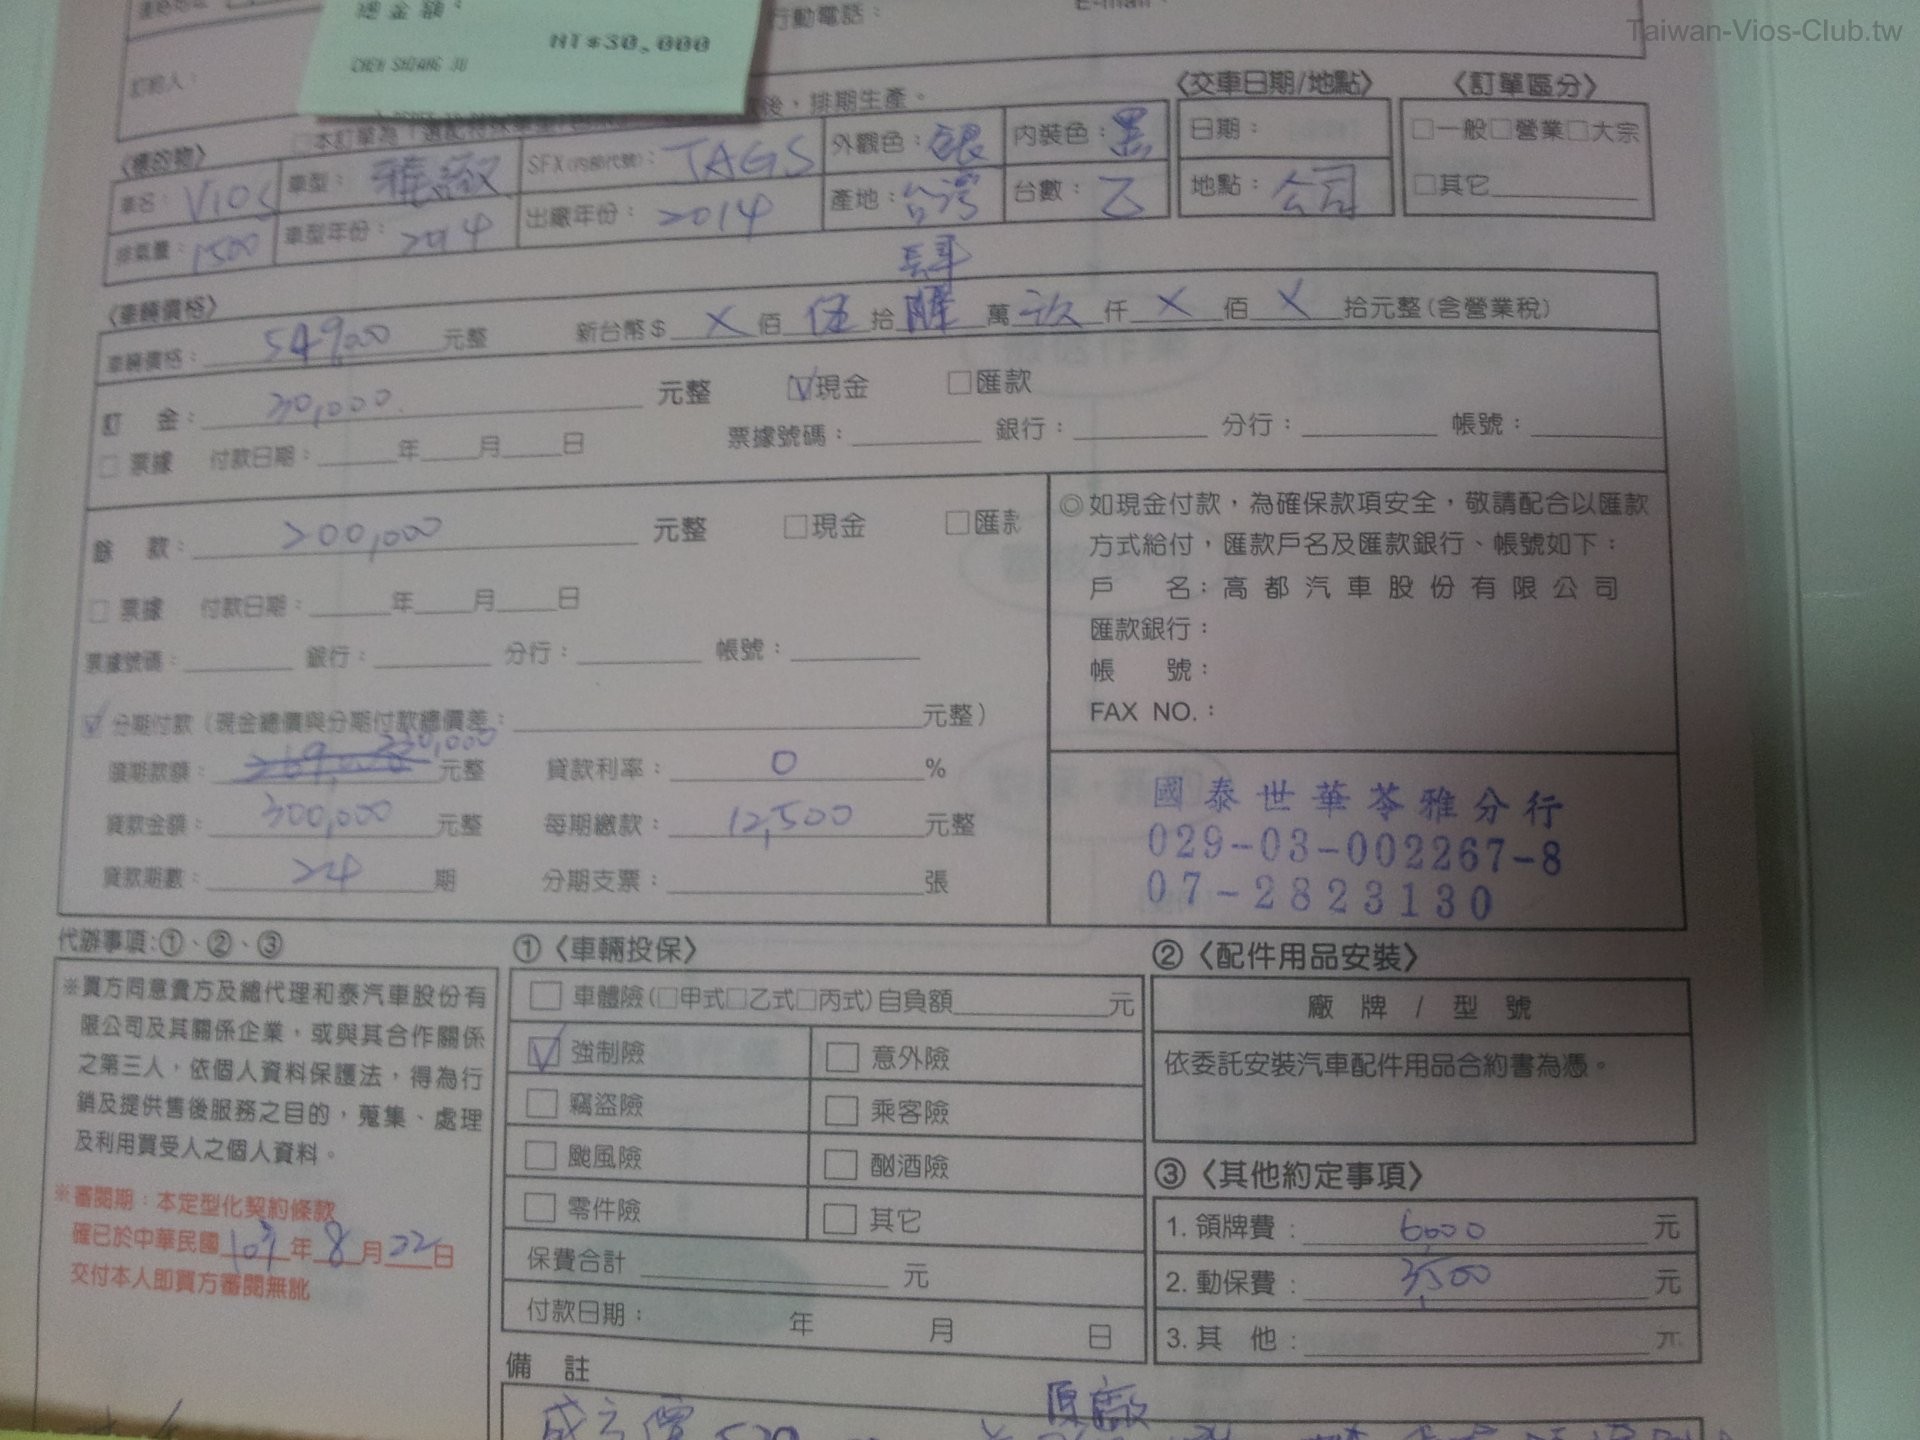 Taiwan-Vios-Club.tw
總金額：
NT$30,000
行動電話：
E-mail：
訂購人：
後，排期生產。
〈標的物〉
〈交車日期/地點〉
〈訂單區分〉
車名：VIOS 車型：雅緻 SFX(內部代號)：TAGS 外觀色：銀 內裝色：黑 日期： □一般□營業□大宗
排氣量：1500 車型年份：2014 出廠年份：2014 產地：台灣 台數：乙 地點：公司 □其它
〈車輛價格〉
肆
車輛價格：549,000 元整 新台幣$ X 佰 伍 拾 陸 萬 玖 仟 X 佰 X 拾元整(含營業稅)
訂 金：30,000 元整 ☑現金 □匯款
□票據 付款日期： 年 月 日 票據號碼： 銀行： 分行： 帳號：
餘 款：200,000 元整 □現金 □匯款
□票據 付款日期： 年 月 日
票據號碼： 銀行： 分行： 帳號：
☑分期付款（現金總價與分期付款總價差： 元整）
230,000
頭期款額：269,000 元整 貸款利率：0 %
貸款金額：300,000 元整 每期繳款：12,500 元整
貸款期數：24 期 分期支票： 張
◎如現金付款，為確保款項安全，敬請配合以匯款
方式給付，匯款戶名及匯款銀行、帳號如下：
戶 名：高都汽車股份有限公司
匯款銀行：
帳 號：
FAX NO.：
國泰世華苓雅分行
029-03-002267-8
07-2823130
代辦事項:①、②、③
※買方同意貴方及總代理和泰汽車股份有
限公司及其關係企業，或與其合作關係
之第三人，依個人資料保護法，得為行
銷及提供售後服務之目的，蒐集、處理
及利用買受人之個人資料。
※審閱期：本定型化契約條款
確已於中華民國103年8月22日
交付本人即買方審閱無訛
①〈車輛投保〉
□ 車體險(□甲式□乙式□丙式)自負額 元
☑ 強制險 □ 意外險
□ 竊盜險 □ 乘客險
□ 颱風險 □ 酗酒險
□ 零件險 □ 其它
保費合計 元
付款日期： 年 月 日
②〈配件用品安裝〉
廠 牌 / 型 號
依委託安裝汽車配件用品合約書為憑。
③〈其他約定事項〉
1. 領牌費：6,000 元
2. 動保費：3,500 元
3. 其 他： 元
備 註
原廠
成交價